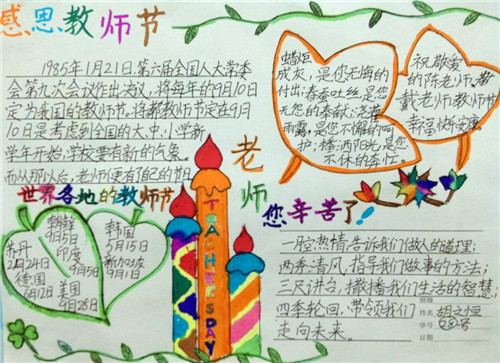 感恩教师节
1985年1月21日,第六届全国人大常委
会第九次会议作出决议,将每年的9月10日
定为我国的教师节,将教师节定在9月
10日是考虑到全国的大、中、小学新
学年开始,学校要有新的气象。
而从那以后,老师便有自己的节日
蜡炬
成灰,是您无悔的
付出;春蚕吐丝,是您
无怨的奉献;
雨露,是您不懈的
护;播洒阳光,是您
不休的
祝敬爱
的陈老师、
戴老师教师节
幸福快乐安康。
老师
您辛苦了!
TEACHERS DAY
世界各地的教师节
朝鲜
9月5日
印度
9月5日
苏丹
2月24日
德国
6月12日
美国
9月28日
韩国
5月15日
新加坡
9月1日
一腔热情,告诉我们做人的道理;
两袖清风,指导我们做事的方法;
三尺讲台,播撒我们生活的智慧;
四季轮回,带领我们
走向未来。
班级
姓名 胡文恒
学号
日期